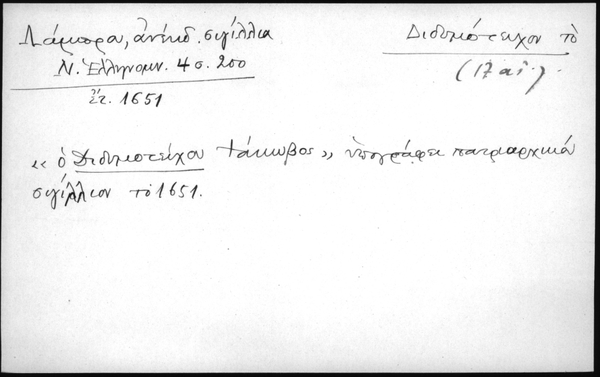 Λάμπρα, ἀνέκδ. σιγίλλια
Ν. Ἑλληνομν. 4 σ. 200
ἔτ. 1651
Διδυμότειχον τὸ
(17 αἰ.)
«ὁ Διδυμοτείχου Ἰάκωβος» ὑπογράφει πατριαρχικό
σιγίλλιον τὸ 1651.